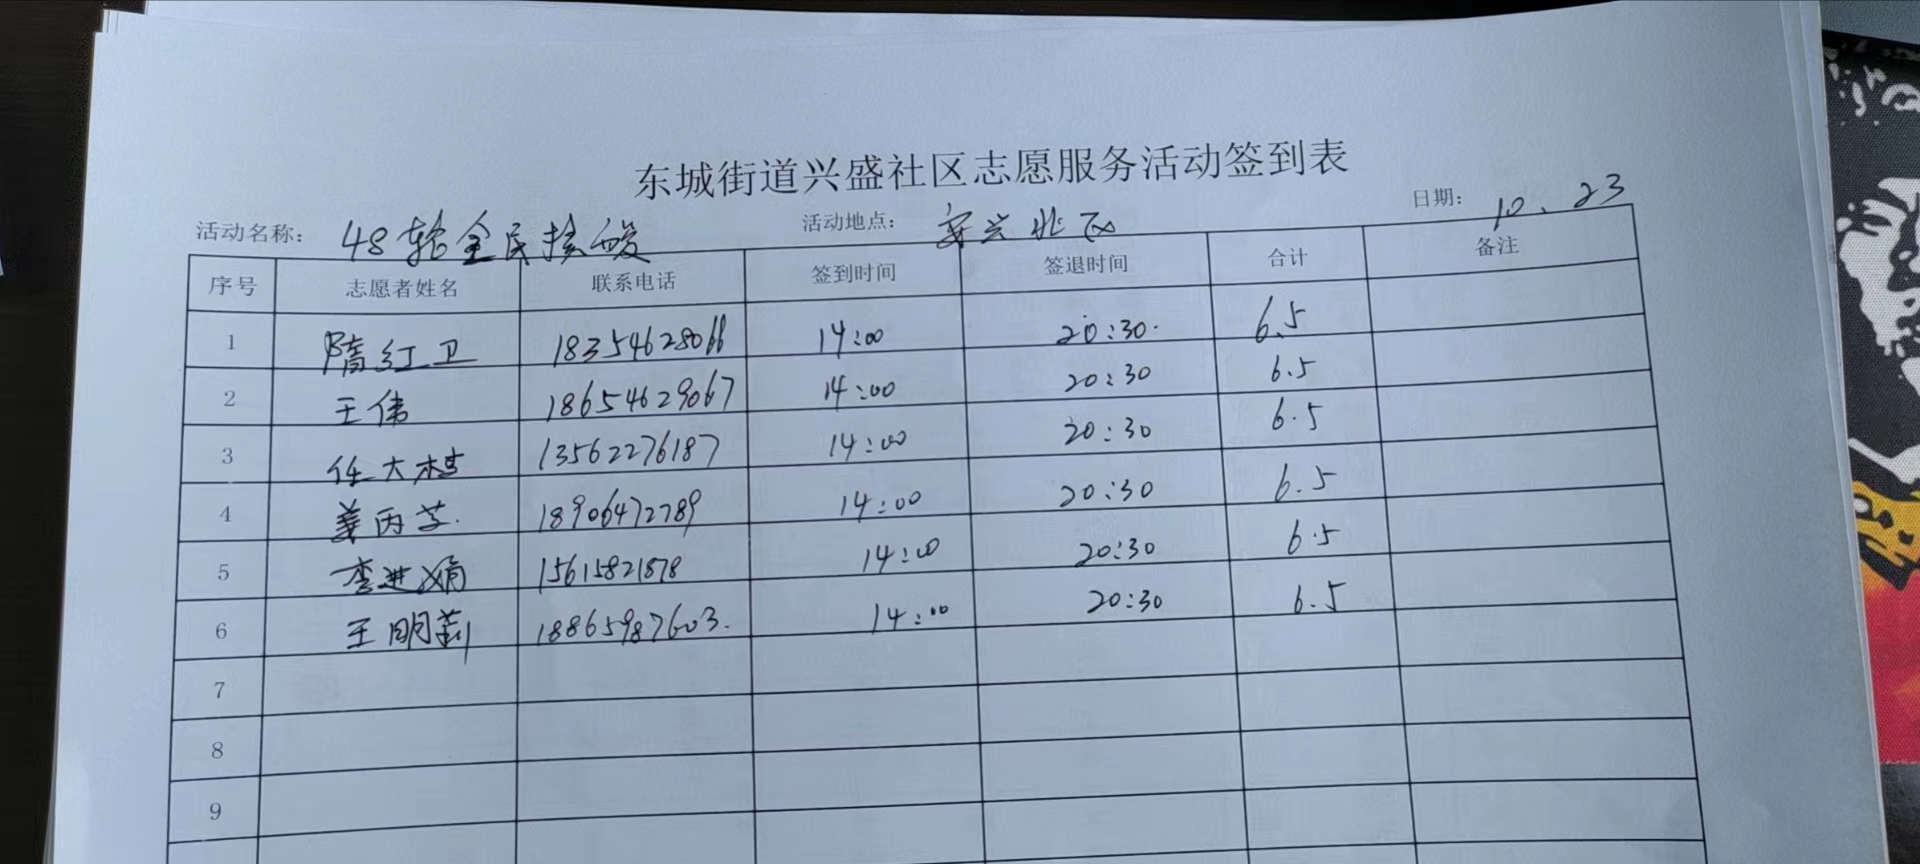 东城街道兴盛社区志愿服务活动签到表
活动名称： 48轮全民核酸 活动地点： 安兴北区 日期： 10.23
序号 志愿者姓名 联系电话 签到时间 签退时间 合计 备注
1 隋红卫 18354628066 14:00 20:30 6.5
2 王伟 18654629067 14:00 20:30 6.5
3 任大桂 13562276187 14:00 20:30 6.5
4 姜丙芝 18906472789 14:00 20:30 6.5
5 李进娟 15615821878 14:00 20:30 6.5
6 王明莉 18865987603. 14:00 20:30 6.5
7
8
9